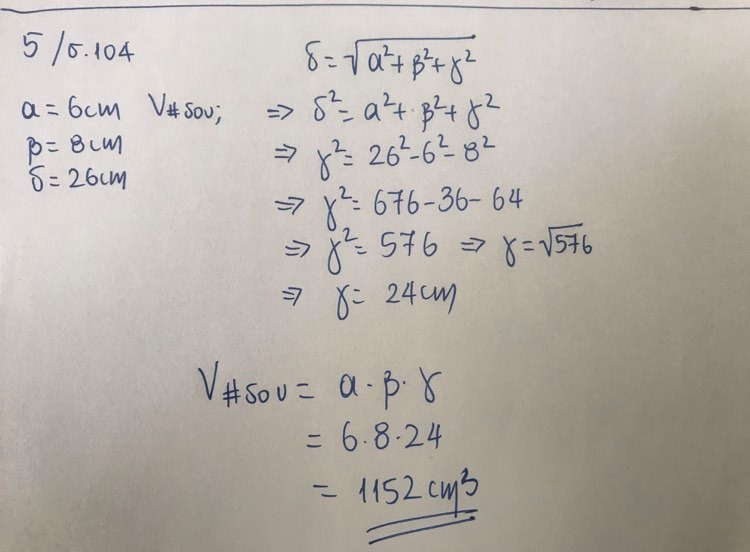 5/σ.104
α = 6cm V#δου;
β = 8cm
δ = 26cm
δ = √α²+β²+γ²
⇒ δ² = α²+β²+γ²
⇒ γ² = 26²-6²-8²
⇒ γ² = 676-36-64
⇒ γ² = 576 ⇒ γ = √576
⇒ γ = 24cm
V#δου = α·β·γ
= 6·8·24
= 1152 cm³